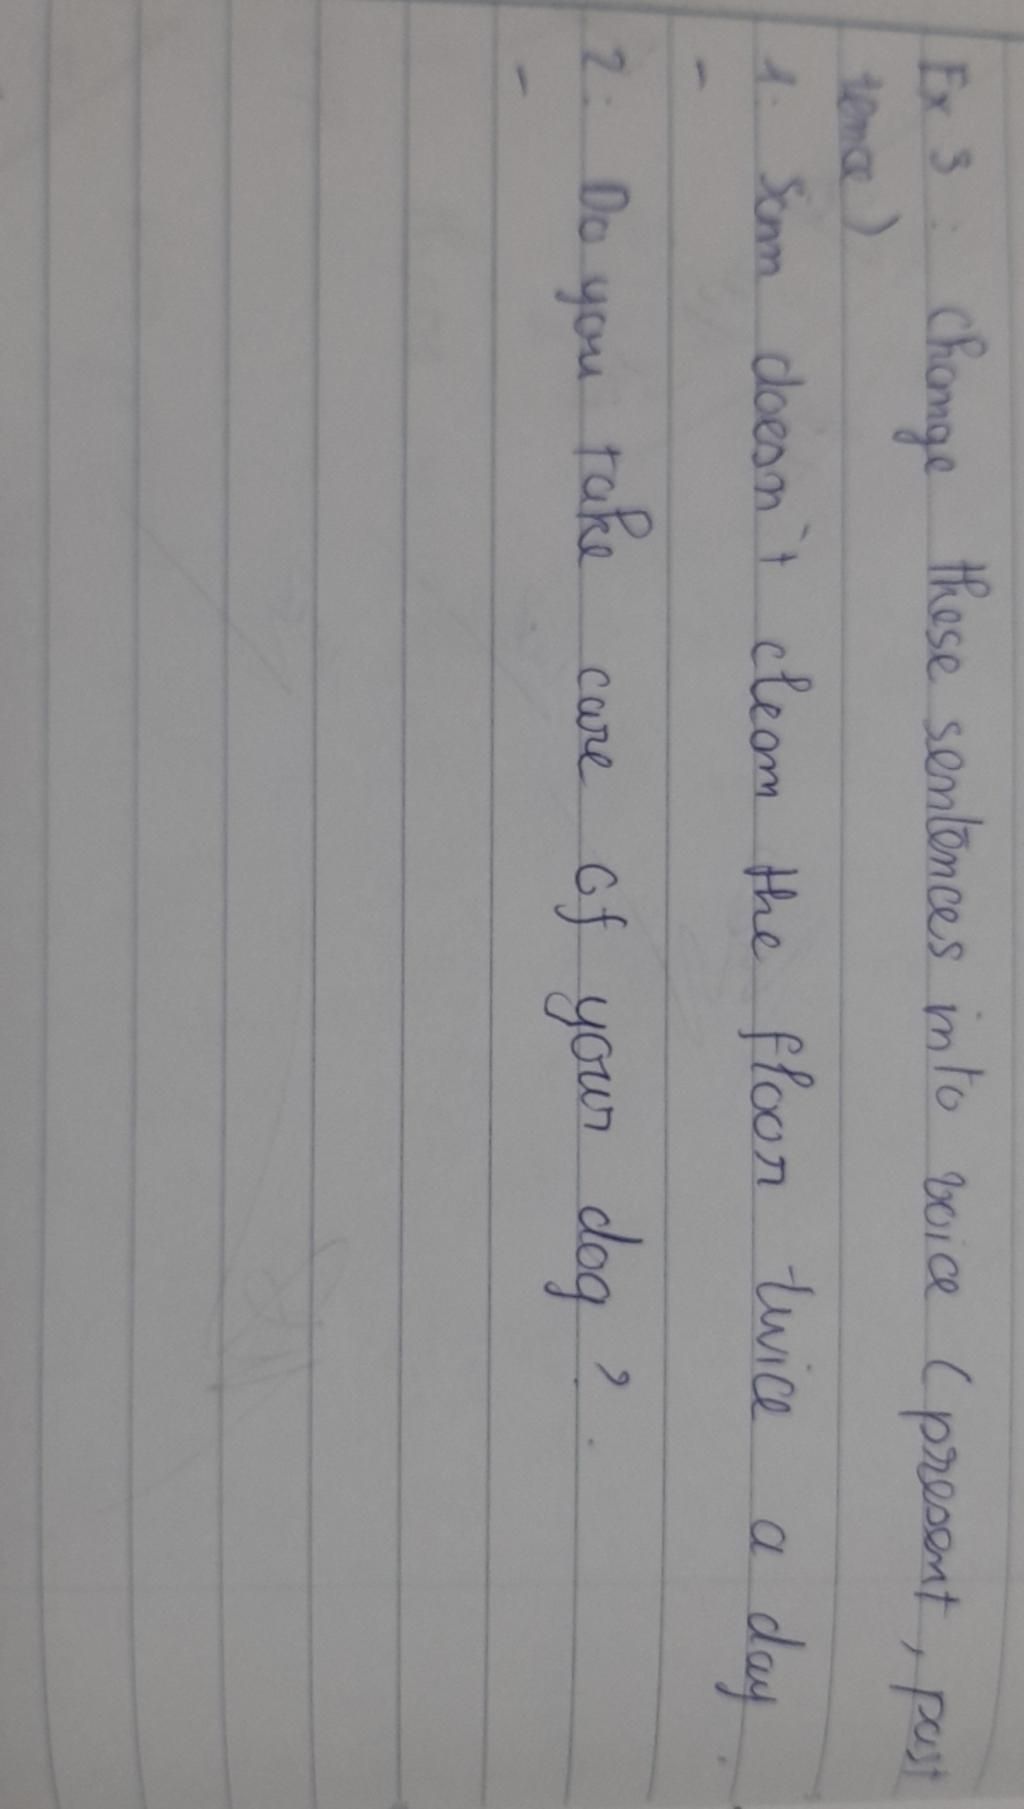 Ex 3 : change these sentences into voice (present, past
tence)
1. Sam doesn't clean the floor twice a day.
-
2. Do you take care of your dog ?.
-